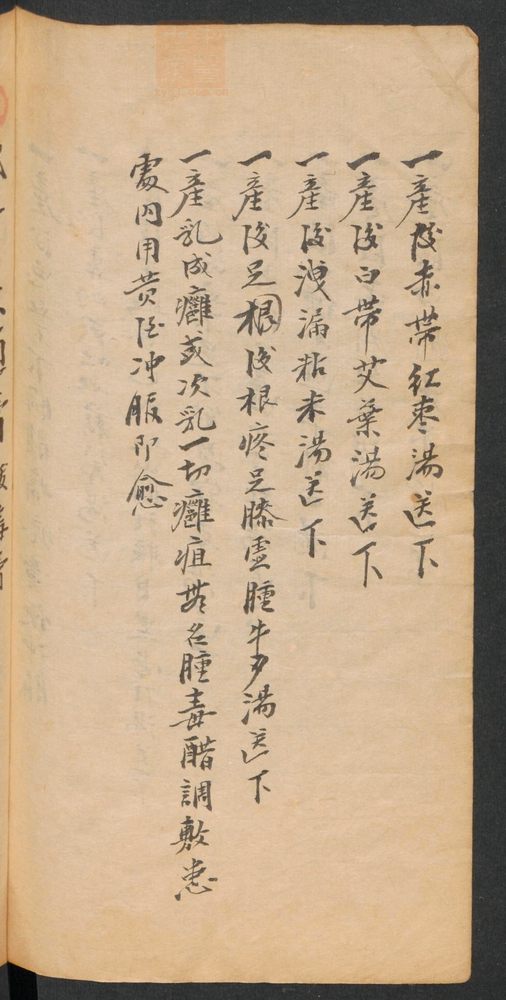 一產後赤帶紅棗湯送下
一產後白帶艾葉湯送下
一產後洩漏粘米湯送下
一產後足根後根疼足膝虛腫牛夕湯送下
一產乳成癰或次乳一切癰疽無名腫毒醋調敷患
處內用黃酒冲服即愈